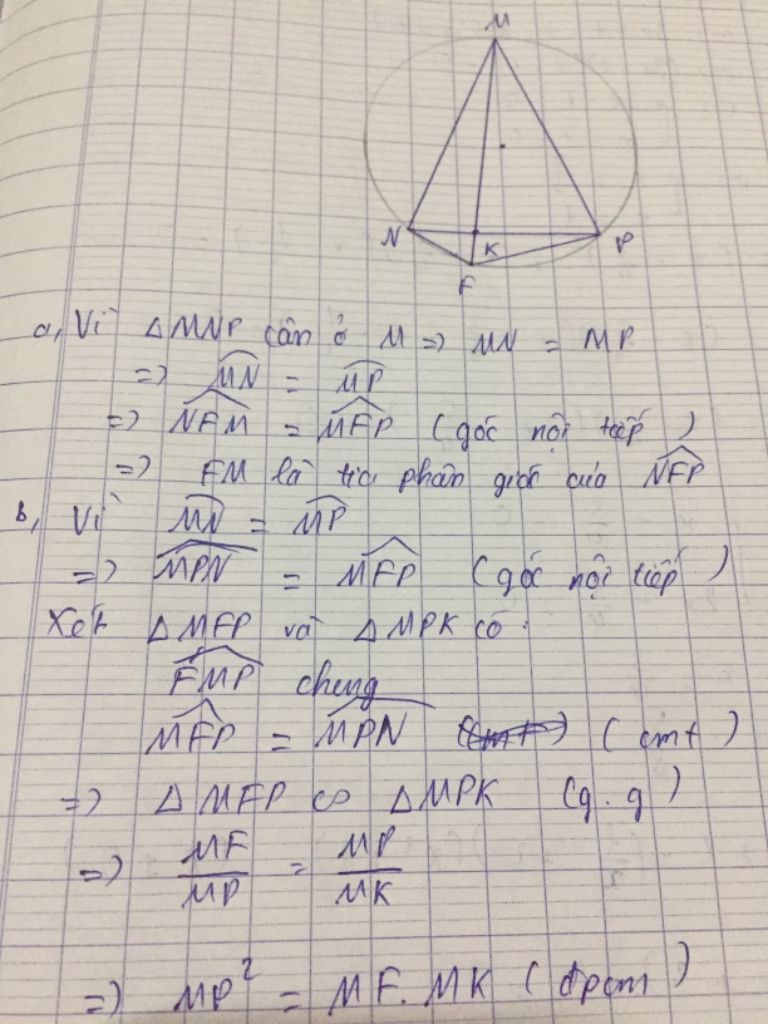 M
N
K
P
F
a, Vì △MNP cân ở M => MN = MP
=> MN = MP
=> NFM = MFP (góc nội tiếp)
=> FM là tia phân giác của NFP
b, Vì MN = MP
=> MPN = MFP (góc nội tiếp)
Xét △MFP và △MPK có:
FMP chung
MFP = MPN (cmt) (cmt)
=> △MFP ∽ △MPK (g.g)
=> MF/MP = MP/MK
=> MP² = MF.MK (đpcm)